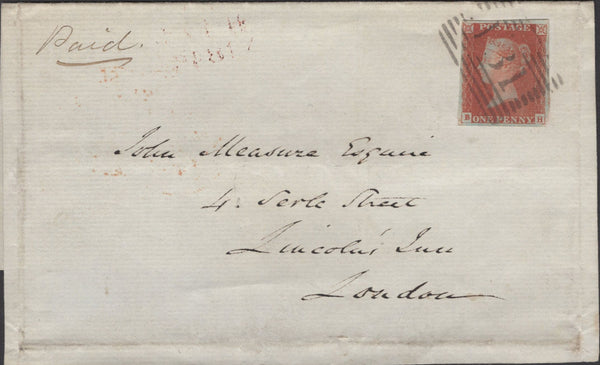 Paid.
POSTAGE
B ONE PENNY H
John Measure Esquire
4. Serle Street
Lincoln's Inn
London